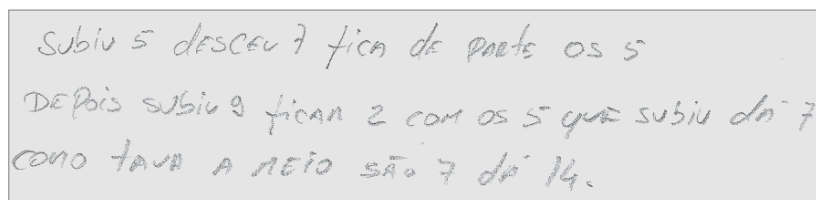 Subiu 5 desceu 7 fica de parte os 5
Depois subiu 9 ficam 2 com os 5 que subiu dá 7
como tava a meio são 7 dá 14.